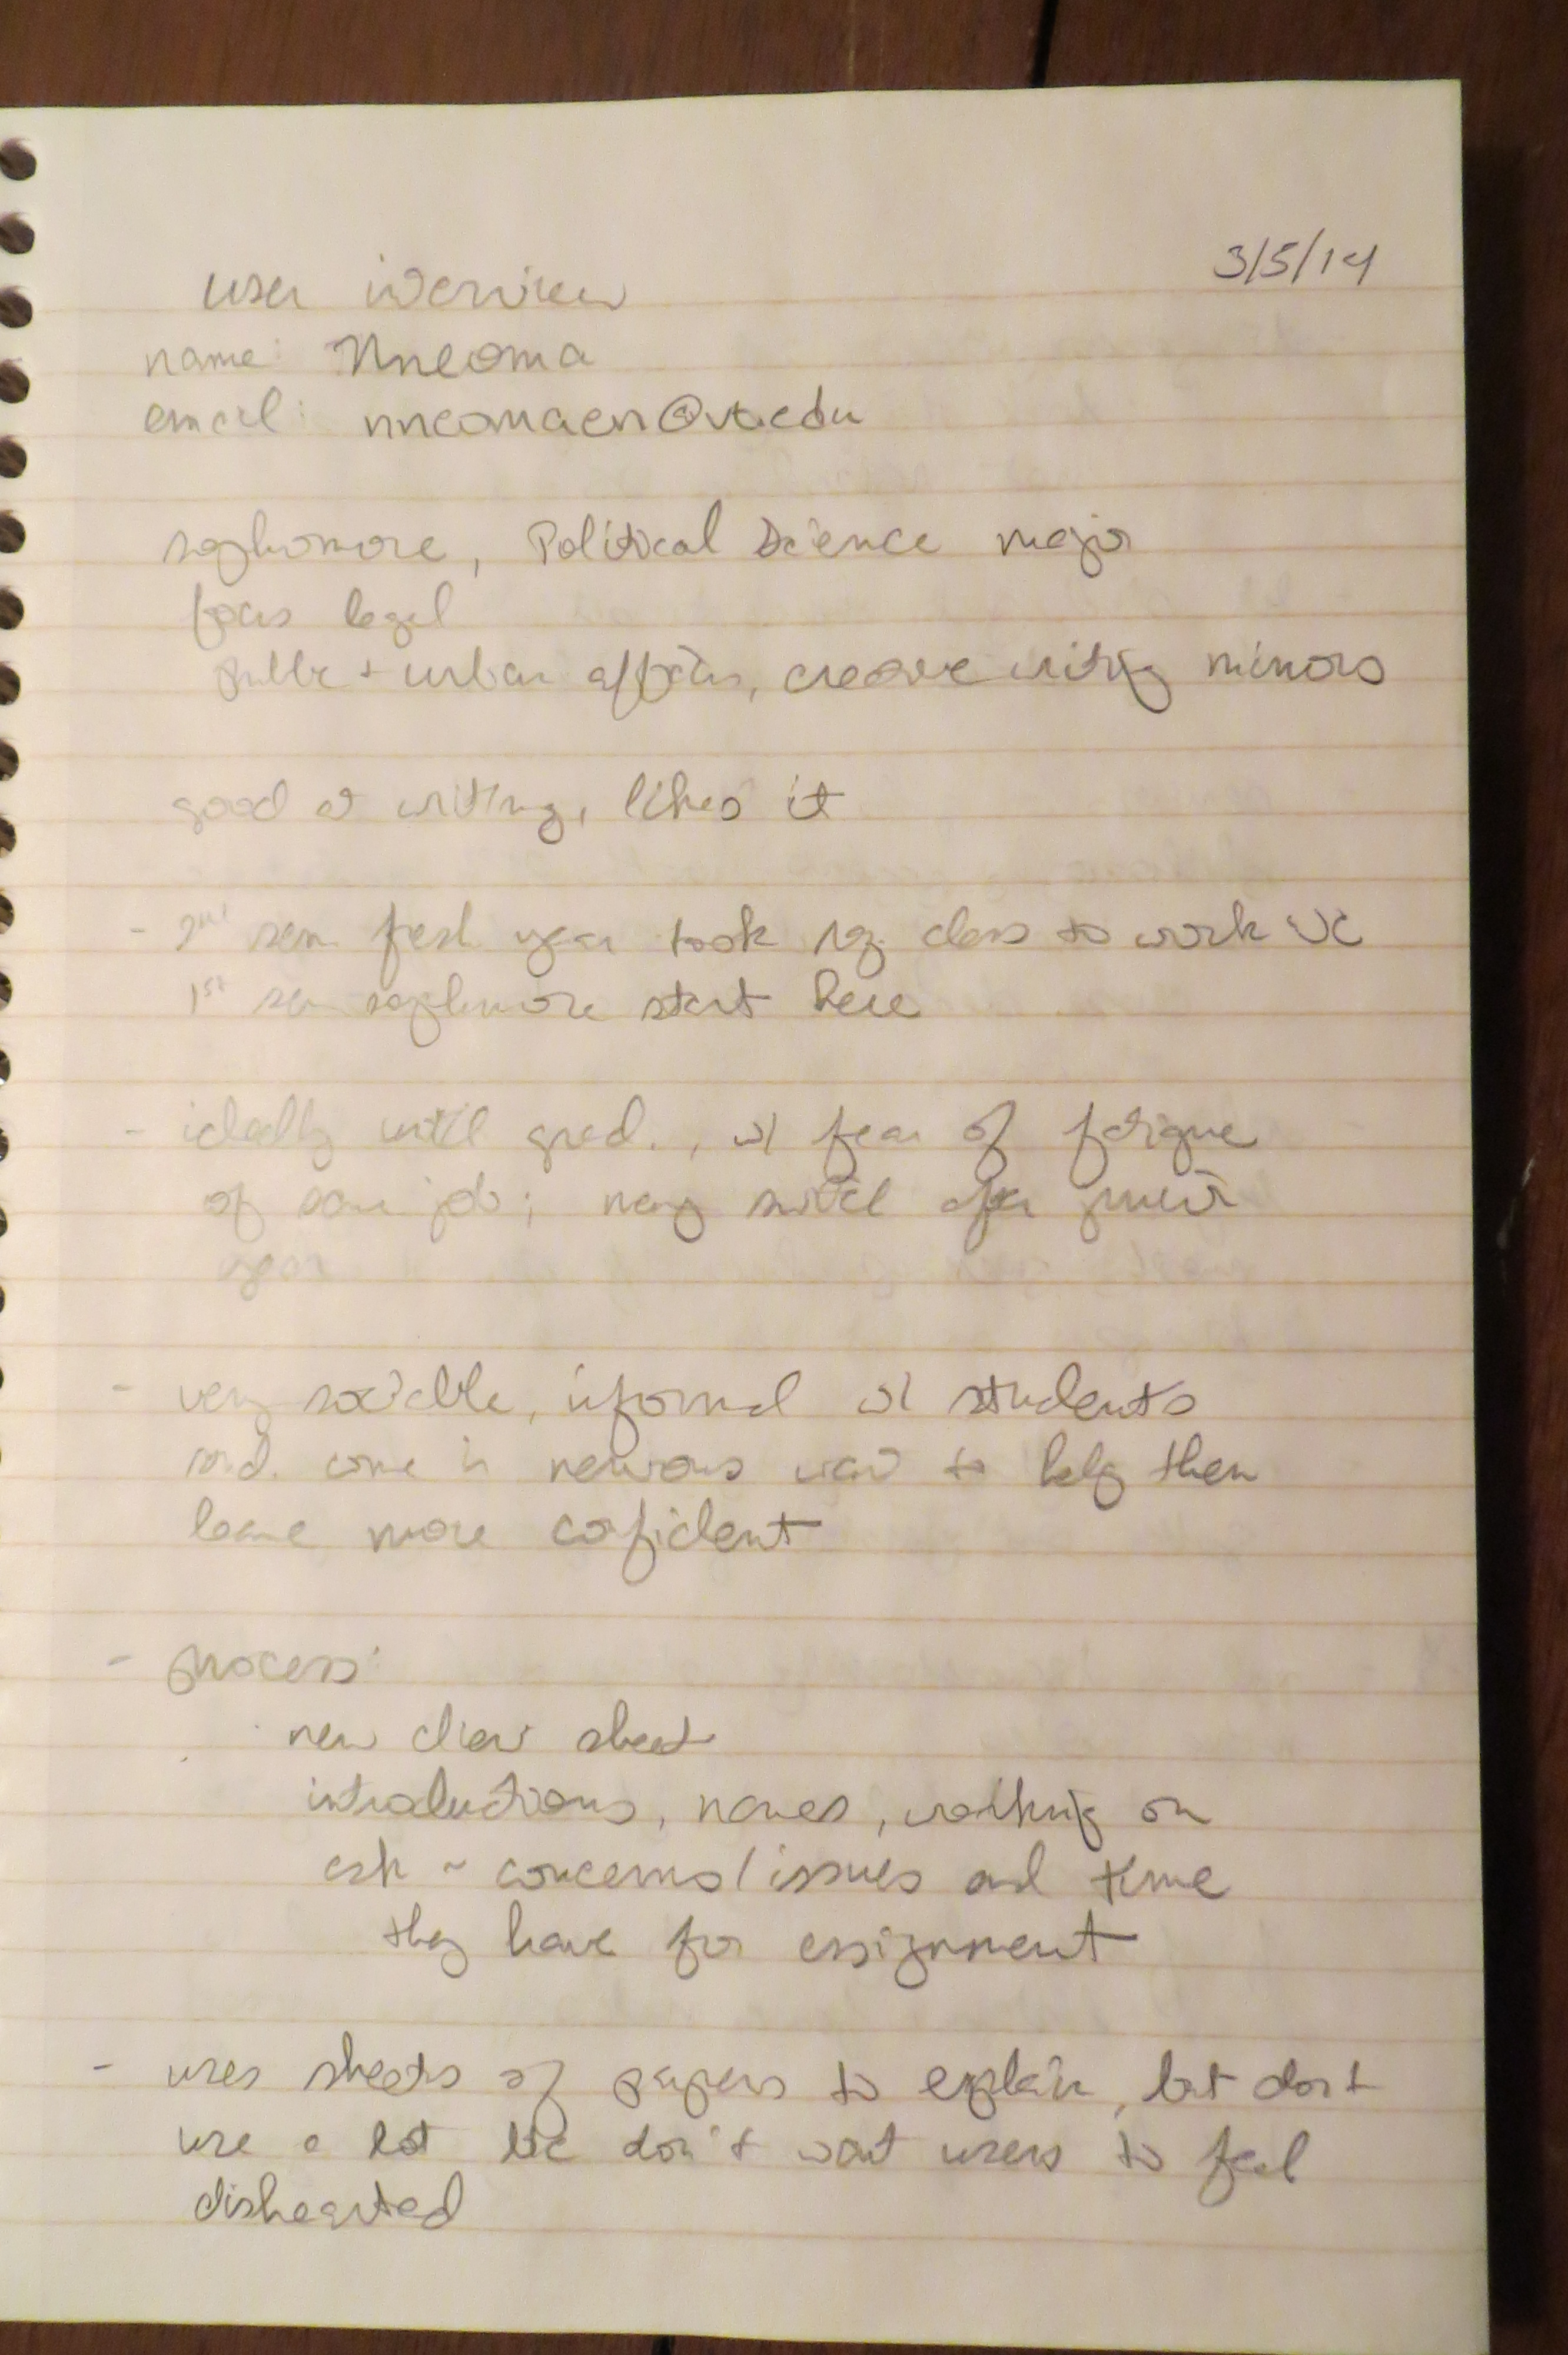 3/5/14
user interview
name: Nneoma
email: nneomaen@vt.edu
sophomore, Political Science major
focus legal
public + urban affairs, creative writing minors
good at writing, likes it
- 2nd sem fresh year took class to work WC
1st sem sophomore start here
- ideally until grad., w/ fear of fatigue
of same job; may switch after junior
year
- very sociable, informal w/ students
come in nervous want to help them
leave more confident
- process:
new client sheet
introductions, names, working on
ask ~ concerns/issues and time
they have for assignment
- uses sheets of papers to explain, but don't
use a lot b/c don't want users to feel
disheartened